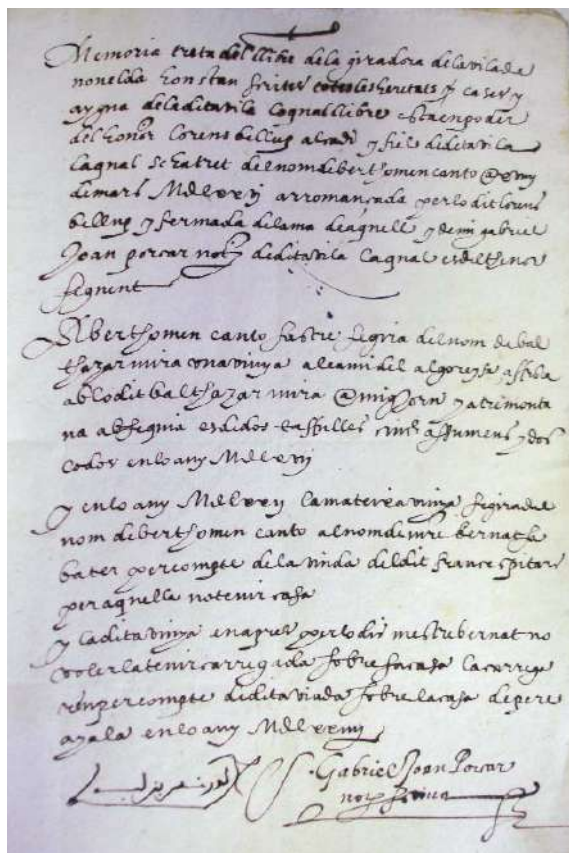 Memoria treta del llibre de la giradora de la vila de
nonelda hon stan scrites totes les heretats y cases y
aygua de la dita vila lo qual llibre esta en poder
del honor Lorens bellup alcadi y fiel de dita vila
La qual se ha tret del nom de berthomeu canto
de mars MDLxxij arromansada per lo dit Lorens
bellup y fermada de la ma de aquell y de mi gabriel
Joan porcar not de dita vila La qual es del thenor
seguent
A berthomeu canto sastre se gira del nom de bal
thazar mira una vinya al cami del algoreyse afronta
ab lo dit balthazar mira a migjorn y a tremonta
na ab sequia es de dos tafulles cinch assumens y dos
codos en lo any MDLxvij
y en lo any MDLxxij la mateixa vinya se gira del
nom de berthomeu canto al nom de mre bernat
per compte de la viuda del dit frances pitarc
per aquella no tenir casa
y la dita vinya en apres per lo dit mestre bernat no
voler la tenir carregada sobre sa casa la carrega
ren per compte de dita viuda sobre la casa de pere
ayala en lo any MDLxxiiij
Gabriel Joan Porcar
not